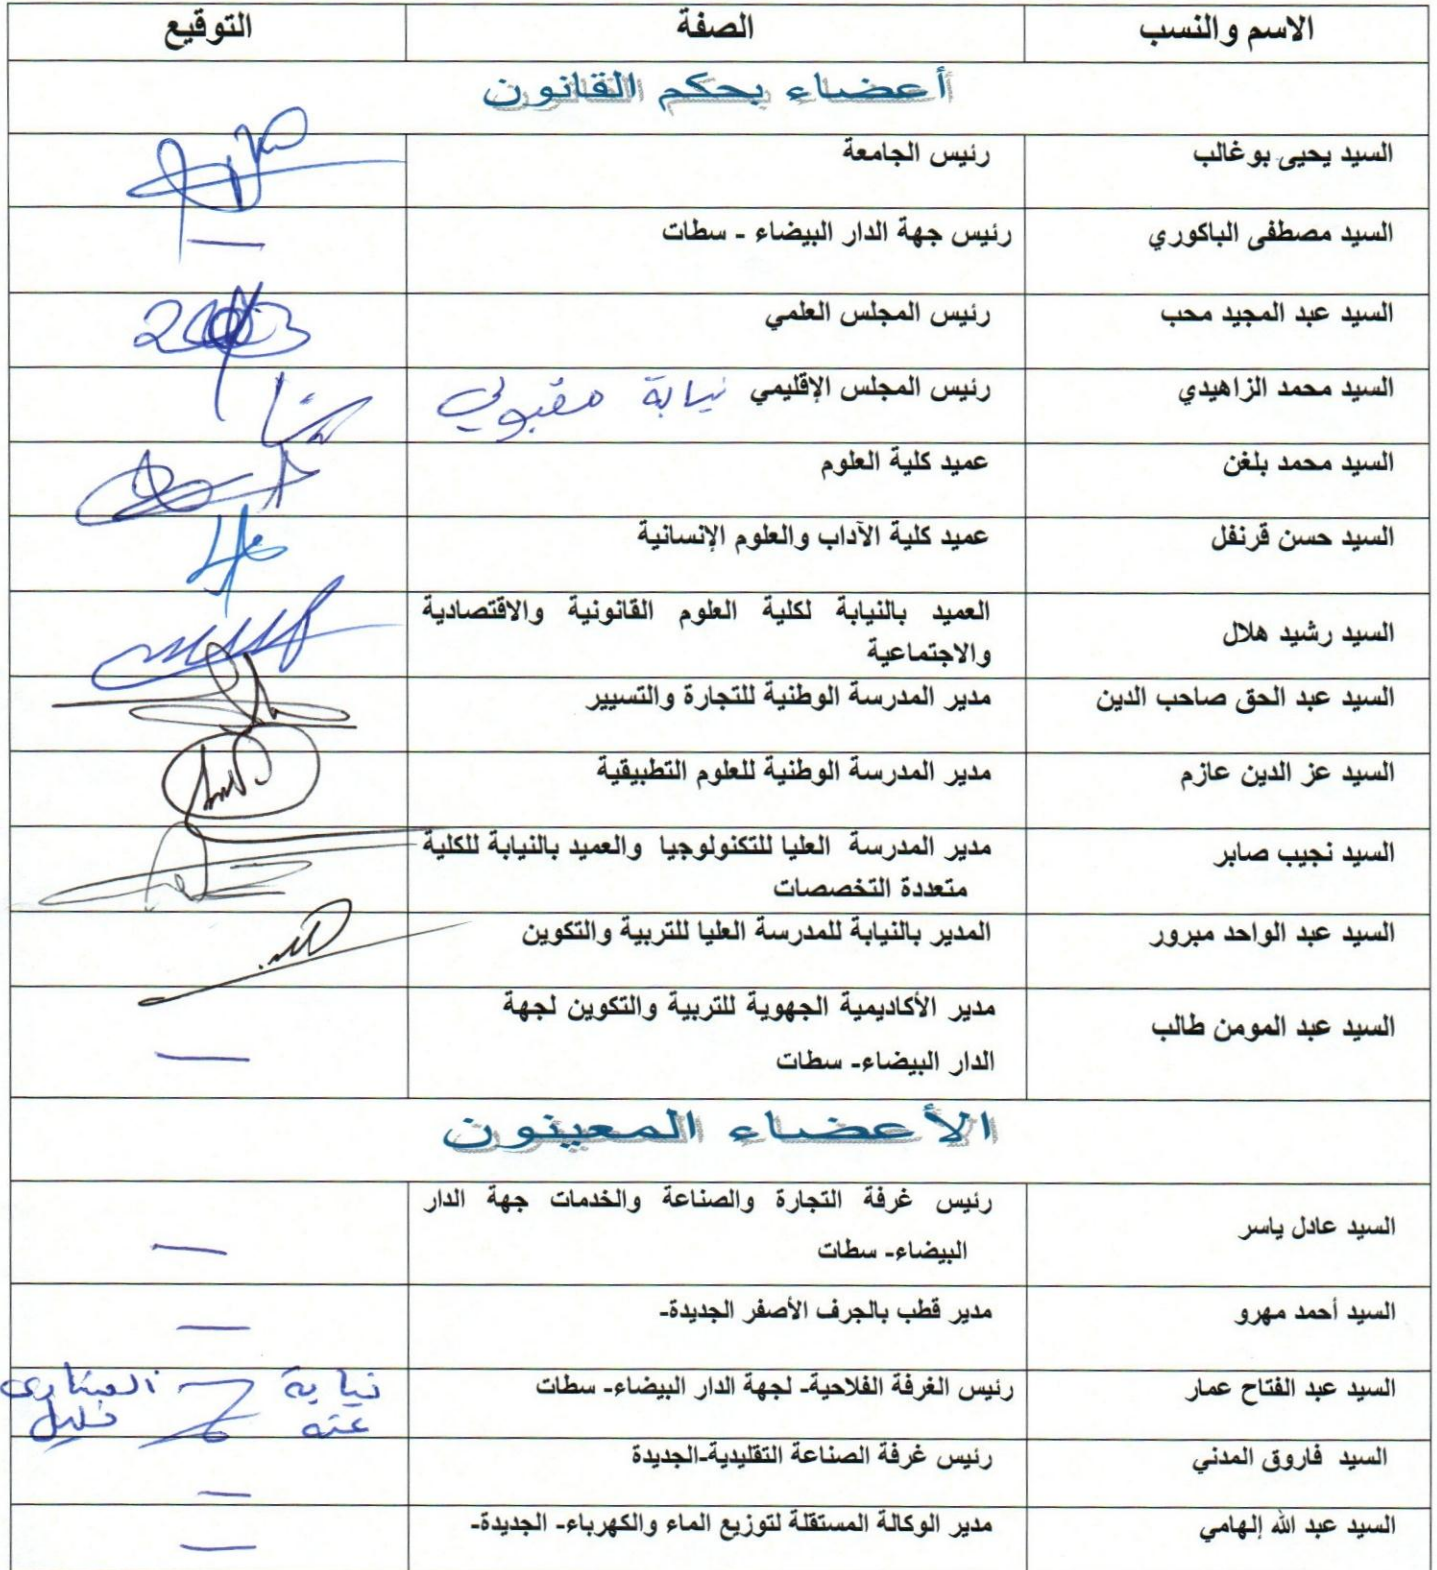 الاسم والنسب الصفة التوقيع
أعضاء بحكم القانون
السيد يحيى بوغالب رئيس الجامعة
السيد مصطفى الباكوري رئيس جهة الدار البيضاء - سطات
السيد عبد المجيد محب رئيس المجلس العلمي
السيد محمد الزاهيدي رئيس المجلس الإقليمي نيابة مقبولي
السيد محمد بلغن عميد كلية العلوم
السيد حسن قرنفل عميد كلية الآداب والعلوم الإنسانية
السيد رشيد هلال العميد بالنيابة لكلية العلوم القانونية والاقتصادية
والاجتماعية
السيد عبد الحق صاحب الدين مدير المدرسة الوطنية للتجارة والتسيير
السيد عز الدين عازم مدير المدرسة الوطنية للعلوم التطبيقية
السيد نجيب صابر مدير المدرسة العليا للتكنولوجيا والعميد بالنيابة للكلية
متعددة التخصصات
السيد عبد الواحد مبرور المدير بالنيابة للمدرسة العليا للتربية والتكوين
السيد عبد المومن طالب مدير الأكاديمية الجهوية للتربية والتكوين لجهة
الدار البيضاء- سطات
الأعضاء المعينون
السيد عادل ياسر رئيس غرفة التجارة والصناعة والخدمات جهة الدار
البيضاء- سطات
السيد أحمد مهرو مدير قطب بالجرف الأصفر الجديدة-
السيد عبد الفتاح عمار رئيس الغرفة الفلاحية- لجهة الدار البيضاء- سطات نيابة
عنه خليل
السيد فاروق المدني رئيس غرفة الصناعة التقليدية-الجديدة
السيد عبد الله إلهامي مدير الوكالة المستقلة لتوزيع الماء والكهرباء- الجديدة-